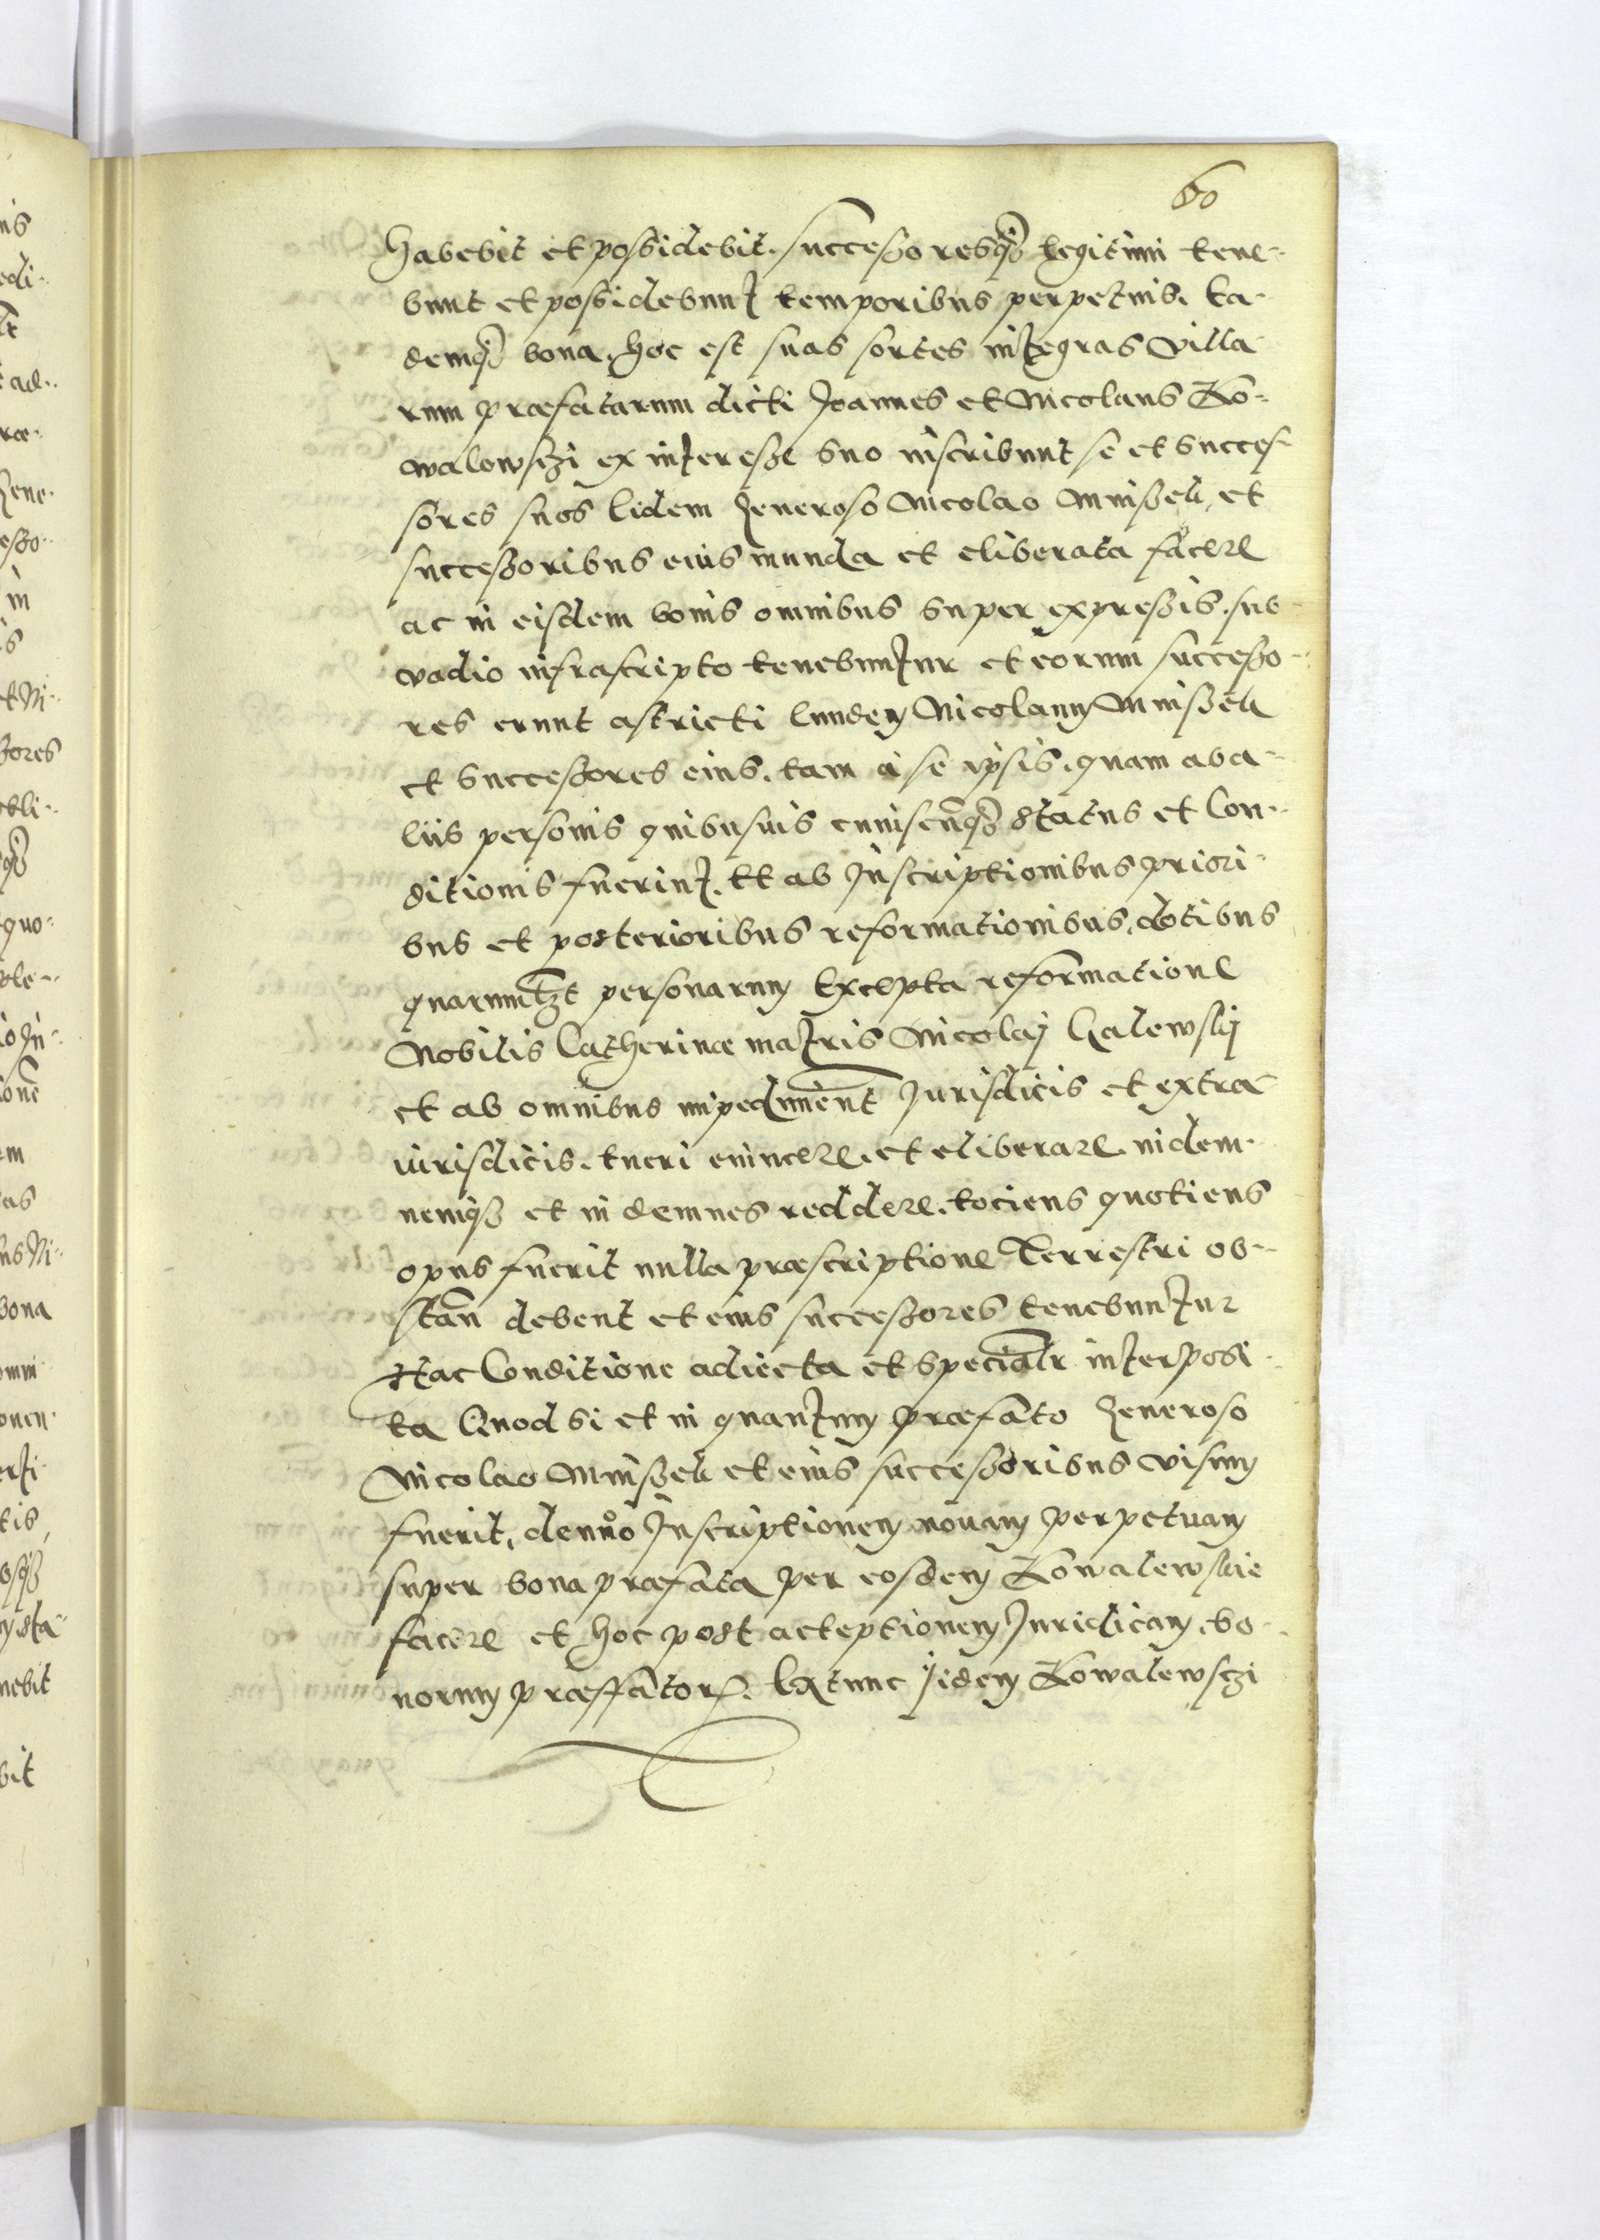 60
habebit et possidebit. successoresq₃ legitimi tene-
bunt et possidebunt temporibus perpetuis. Ea-
demq₃ bona. hoc est suas sortes integras villa-
rum præfatarum dicti Joannes et Nicolaus Ko-
walowsczi ex interesse suo inscribunt se et succes-
sores suos Eidem Generoso Nicolao Mnisseh, et
successoribus eius munda et eliberata facere
ac in eisdem bonis omnibus super expressis. sub
vadio infrascripto tenebuntur et eorum successo-
res erunt astricti Eundem Nicolaum Mnisseh
et successores eius. tam à se ipsis. quam ab a-
liis personis quibusuis cuiuscunq₃ status et Con-
ditionis fuerint. Et ab Inscriptionibus priori-
bus et posterioribus reformationibus, dotibus
quarumlibet personarum Excepta reformatione
Nobilis Catherinæ matris Nicolai Kalewskij
et ab omnibus impediment Jurisdicis et extra
iurisdicis. tueri euincere. et eliberare. indem-
nemq₃ et indemnes reddere. tociens quotiens
opus fuerit nulla præscriptione Terrestri ob-
stan debent et eius successores tenebuntur
Hac Conditione adiecta et specialr interposi-
ta Quod si et in quantum præfato Generoso
Nicolao Mnisseh et eius successoribus visum
fuerit, denuo Inscriptionem nouam perpetuam
super bona præfata per eosdem Kowalewskie
facere et hoc post acceptionem Juridicam. bo-
norum præffator. Extunc ijdem Kowalewsczi